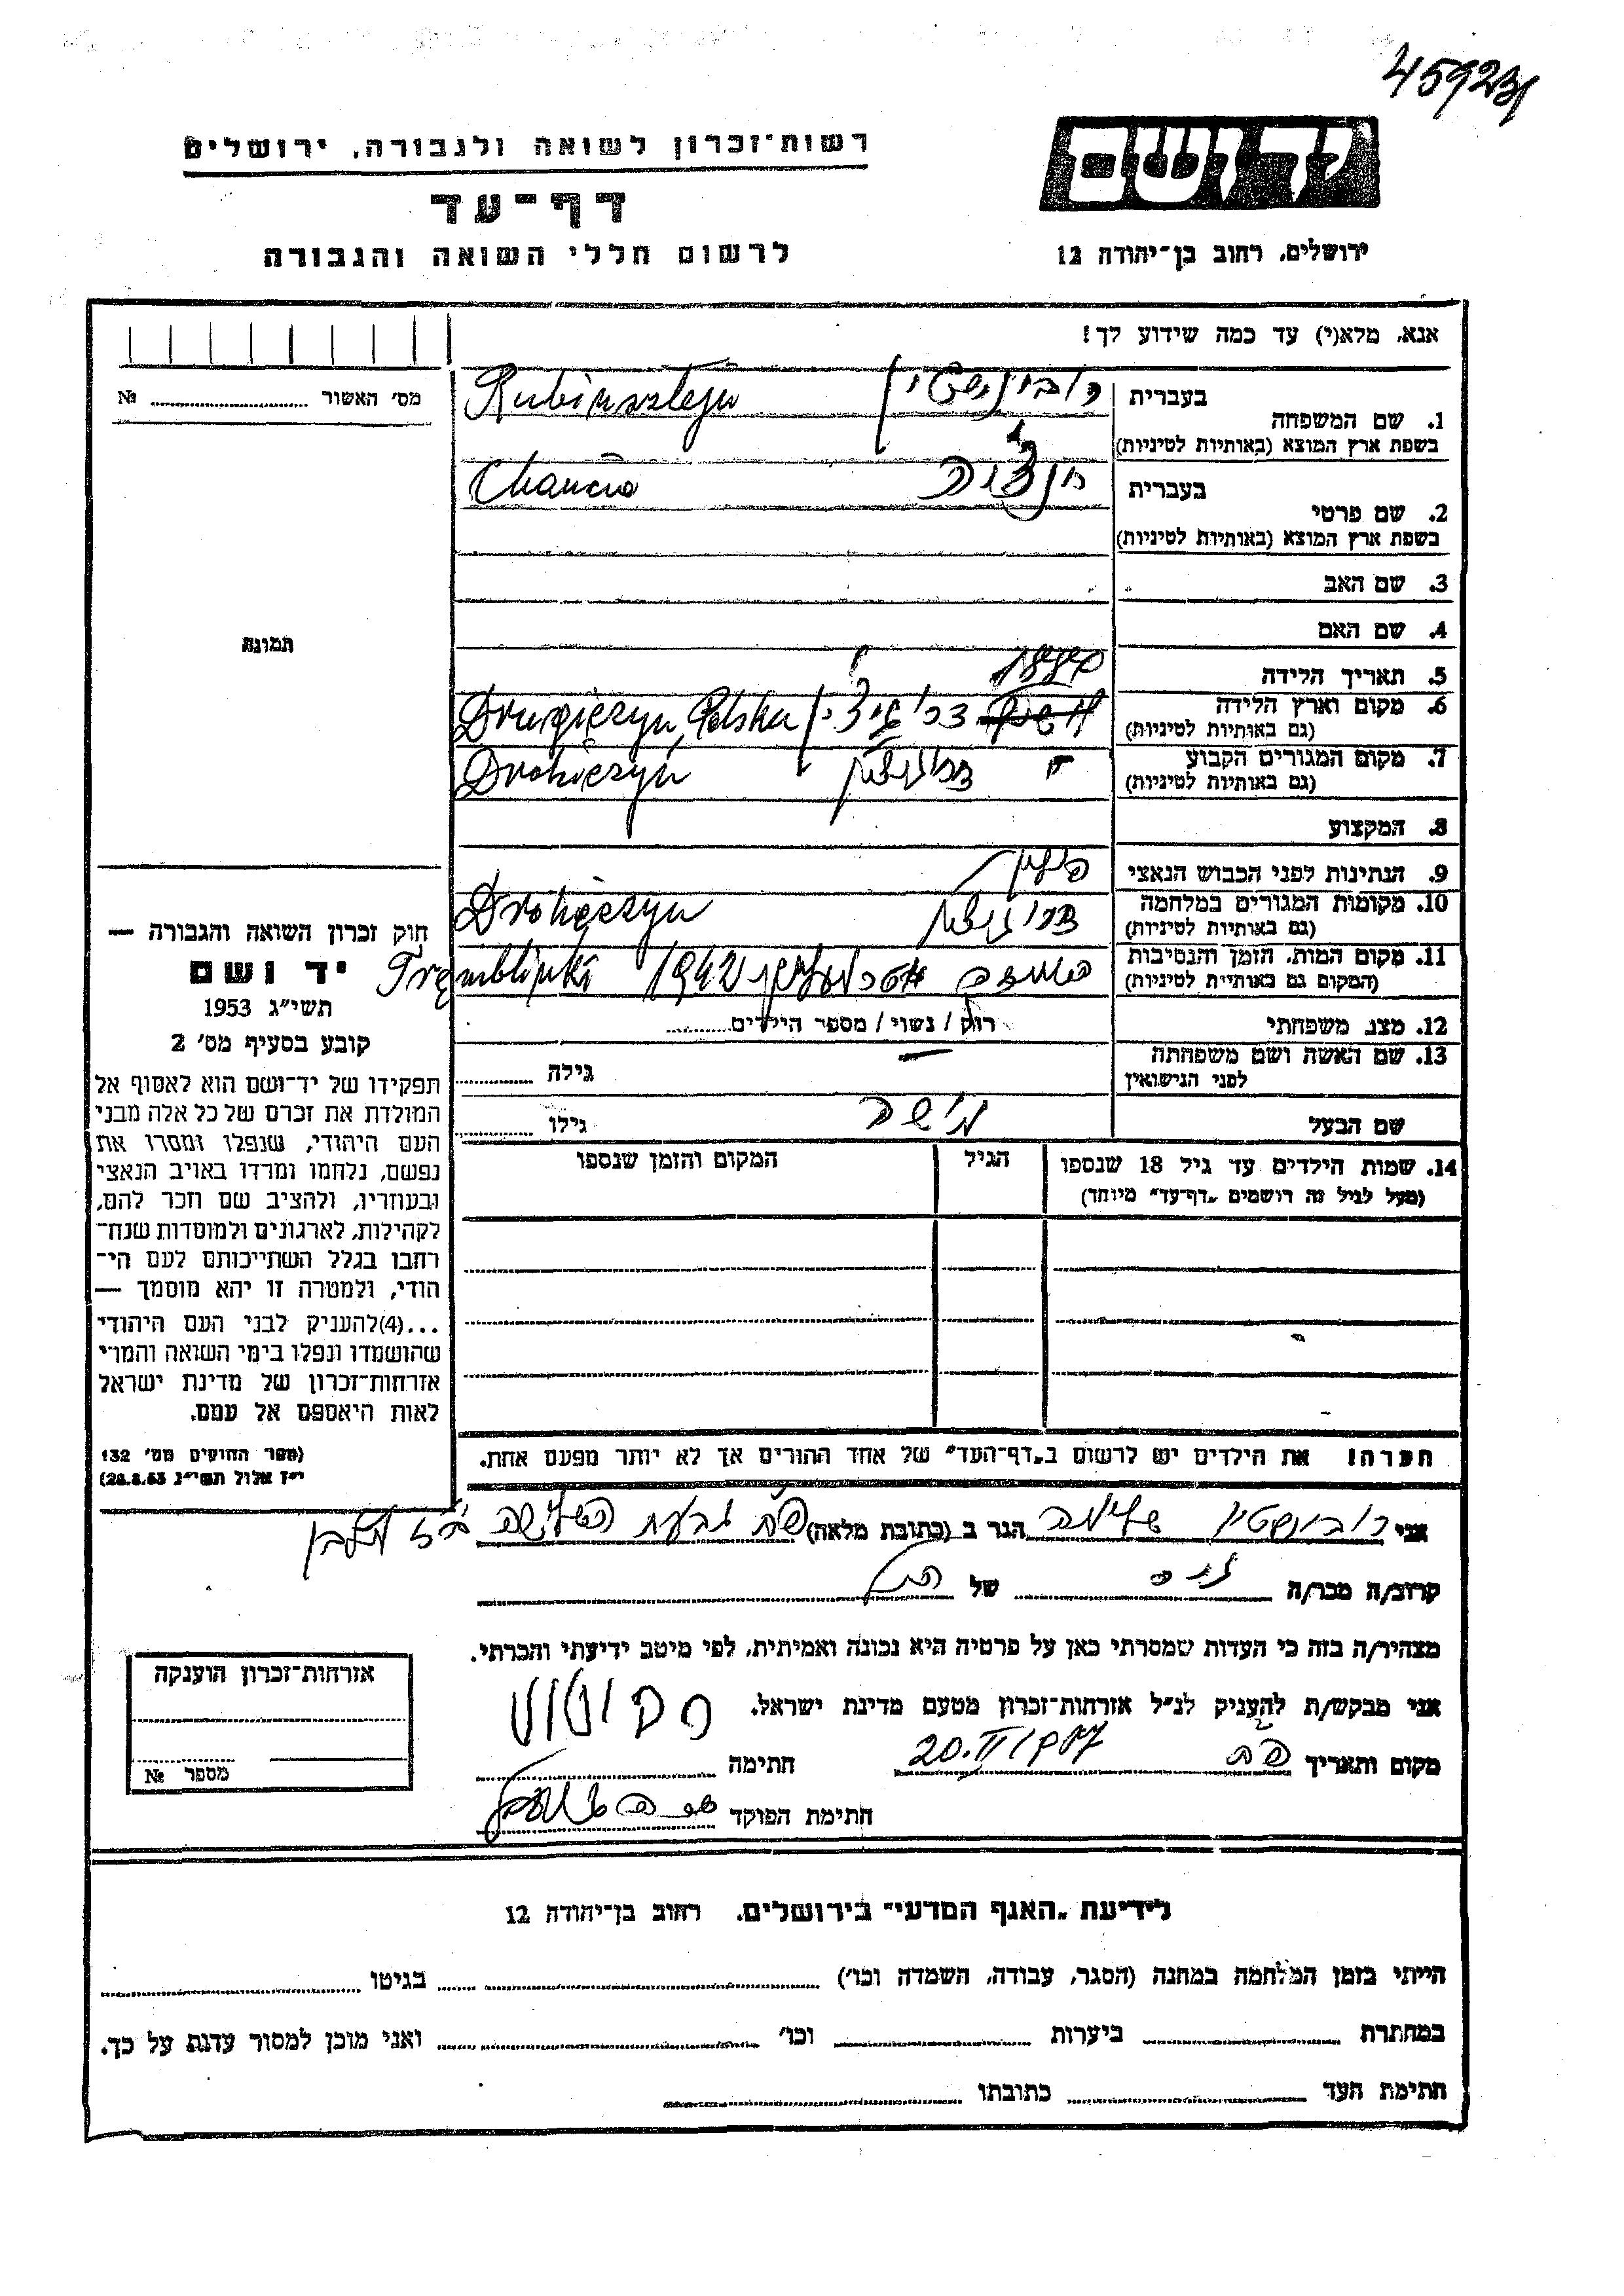 459231
רשות־זכרון לשואה ולגבורה, ירושלים
דף־עד
לרשום חללי השואה והגבורה
יד ושם
ירושלים, רחוב בן־יהודה 12
אנא, מלא(י) עד כמה שידוע לך!
מס׳ האשור №
1. שם המשפחה
בעברית
רובינשטיין
Rubinsztejn
בשפת ארץ המוצא (באותיות לטיניות)
2. שם פרטי
בעברית
Chancia
בשפת ארץ המוצא (באותיות לטיניות)
3. שם האב
4. שם האם
5. תאריך הלידה
6. מקום וארץ הלידה
Drugiczyn, Polska
(גם באותיות לטיניות)
7. מקום המגורים הקבוע
Drohiczyn
(גם באותיות לטיניות)
8. המקצוע
9. הנתינות לפני הכבוש הנאצי
פולין
10. מקומות המגורים במלחמה
Drohiczyn
(גם באותיות לטיניות)
11. מקום המות, הזמן והנסיבות
1942 Tremblinki
(המקום גם באותיות לטיניות)
12. מצב משפחתי
רווק / נשוי / מספר הילדים
13. שם האשה ושם משפחתה
לפני הנישואין
גילה
שם הבעל
משה
גילו
14. שמות הילדים עד גיל 18 שנספו
(מעל לגיל זה רושמים „דף־עד״ מיוחד)
הגיל
המקום והזמן שנספו
הערה! את הילדים יש לרשום ב„דף־העד״ של אחד ההורים אך לא יותר מפעם אחת.
תמונה
חוק זכרון השואה והגבורה —
יד ושם
תשי״ג 1953
קובע בסעיף מס׳ 2
תפקידו של יד־ושם הוא לאסוף אל
המולדת את זכרם של כל אלה מבני
העם היהודי, שנפלו ומסרו את
נפשם, נלחמו ומרדו באויב הנאצי
ובעוזריו, ולהציב שם וזכר להם,
לקהילות, לארגונים ולמוסדות שנח־
רחבו בגלל השתייכותם לעם הי־
הודי, ולמטרה זו יהא מוסמך —
...(4)להעניק לבני העם היהודי
שהושמדו ונפלו בימי השואה והמרי
אזרחות־זכרון של מדינת ישראל
לאות היאספם אל עמם.
(ספר החוקים מס׳ 132
י״ז אלול תשי״ג 28.8.53)
אני רובינשטיין שלמה הגר ב (כתובת מלאה) פ״ת גבעת השלושה
קרוב/ה מכר/ה גיס של הנ״ל
מצהיר/ה בזה כי העדות שמסרתי כאן על פרטיה היא נכונה ואמיתית, לפי מיטב ידיעתי והכרתי.
אני מבקש/ת להעניק לנ״ל אזרחות־זכרון מטעם מדינת ישראל.
מקום ותאריך פ״ת 20.II 1957 חתימה
חתימת הפוקד
אזרחות־זכרון הוענקה
מספר №
לידיעת „האגף המדעי״ בירושלים, רחוב בן־יהודה 12
הייתי בזמן המלחמה במחנה (הסגר, עבודה, השמדה וכו׳) בגיטו
במחתרת ביערות וכו׳ ואני מוכן למסור עדות על כך.
חתימת העד כתובתו